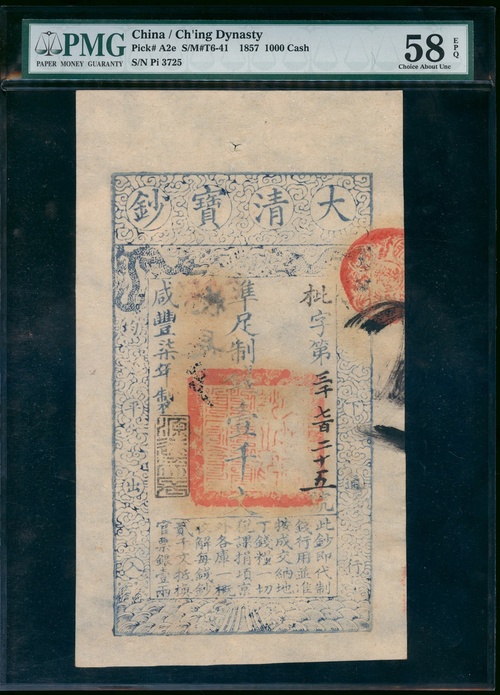 PMG
PAPER MONEY GUARANTY
China / Ch'ing Dynasty
Pick# A2e S/M#T6-41 1857 1000 Cash
S/N Pi 3725
58 EPQ
Choice About Unc
大清寶鈔
下通行
批字第三千七百二十五號
準足制錢壹千文
咸豐柒年製
均平出入
此鈔即代制
錢行用並准
按成交納地
丁錢糧一切
稅課捐項京
外各庫 概
解每錢鈔
貳千文抵換
官票銀壹兩